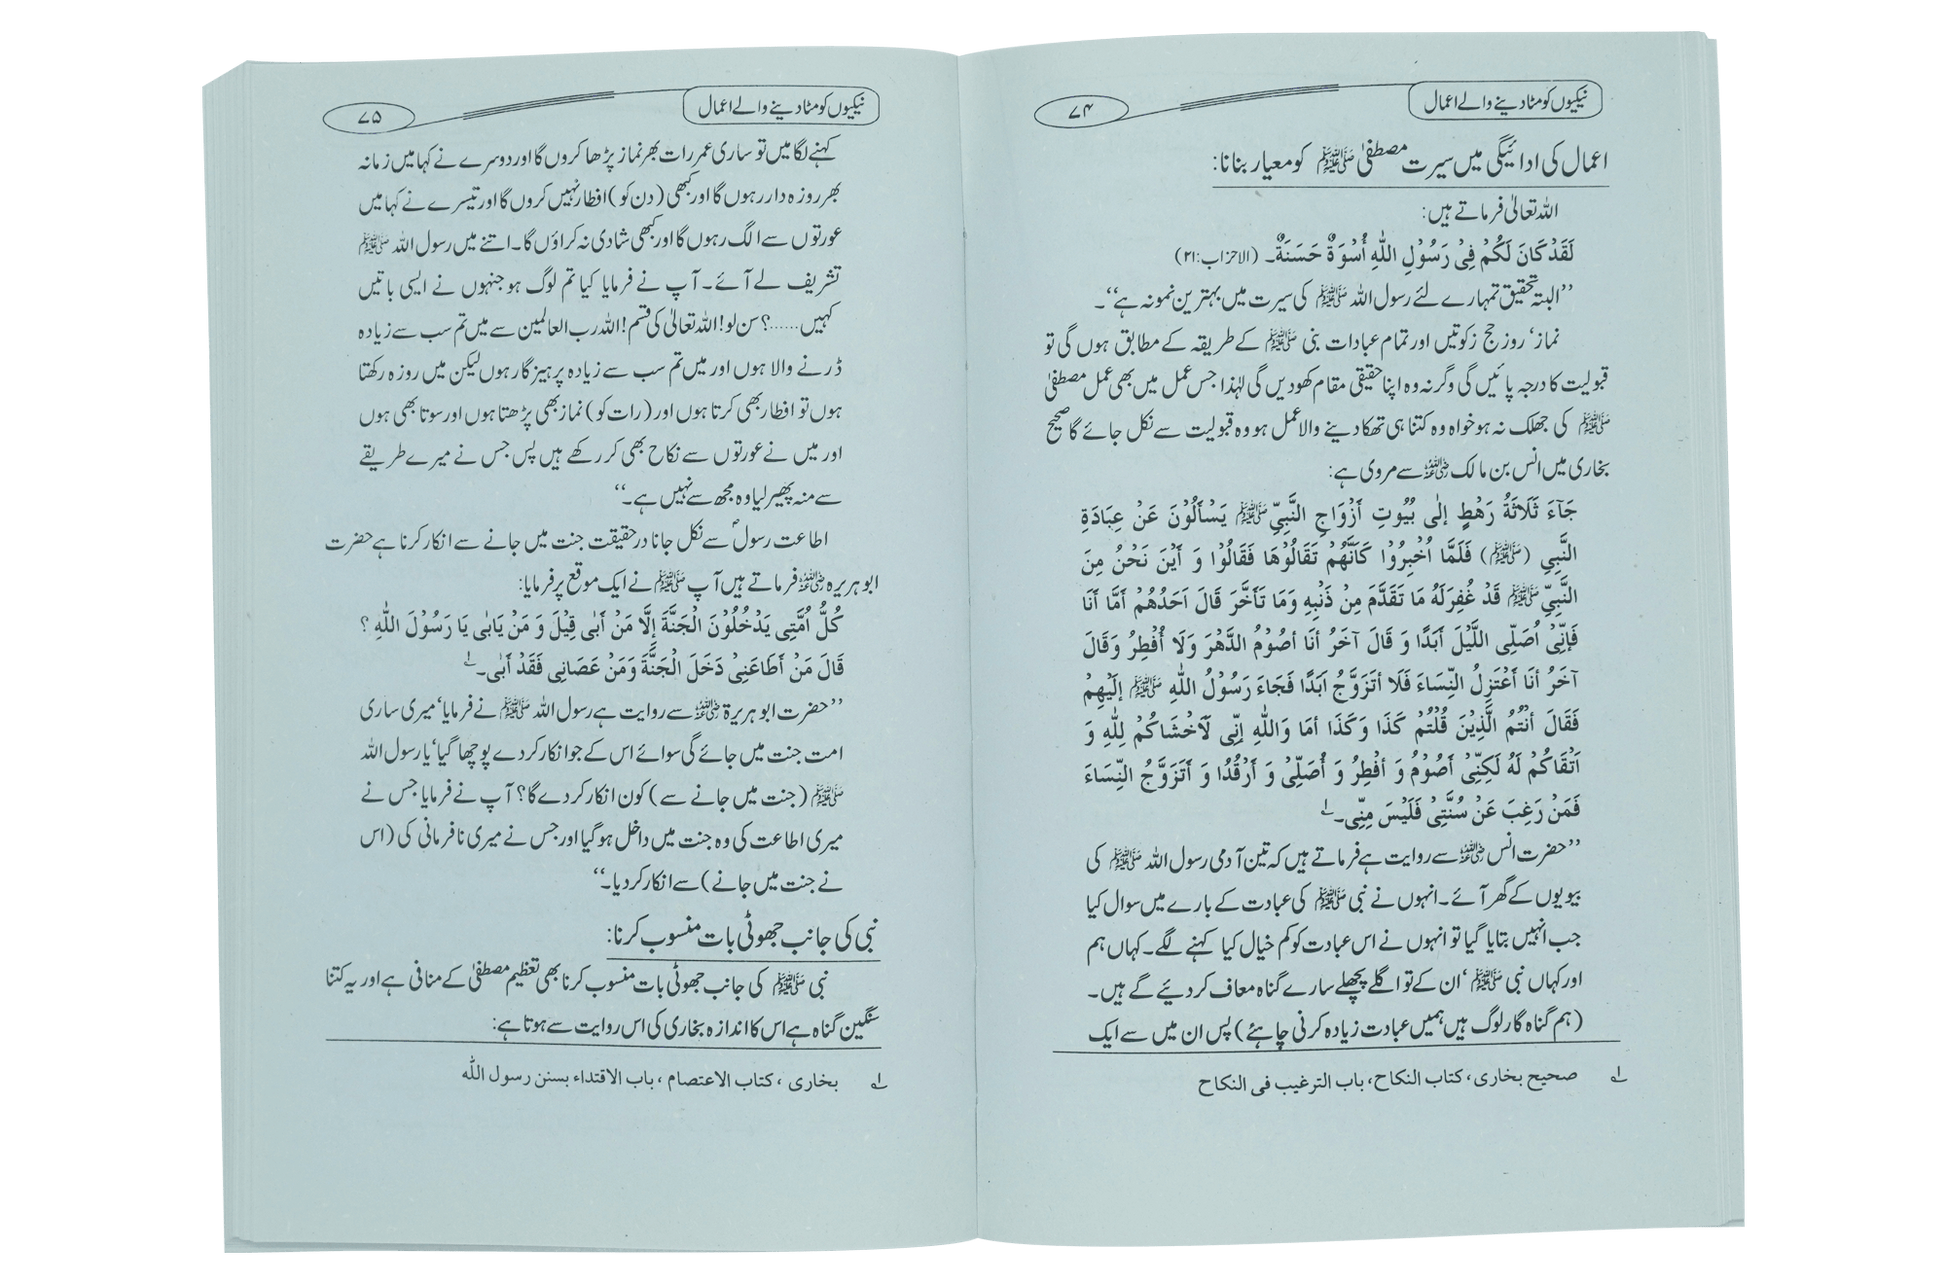 نیکیوں کو مٹا دینے والے اعمال
۷۴
اعمال کی ادائیگی میں سیرت مصطفیٰ ﷺ کو معیار بنانا:
اللہ تعالیٰ فرماتے ہیں:
لَقَدْ كَانَ لَكُمْ فِیْ رَسُوْلِ اللّٰهِ أُسْوَةٌ حَسَنَةٌ۔ (الاحزاب:۲۱)
’’البتہ تحقیق تمہارے لئے رسول اللہ ﷺ کی سیرت میں بہترین نمونہ ہے‘‘۔
نماز‘ روز حج زکوتیں اور تمام عبادات بنی ﷺ کے طریقہ کے مطابق ہوں گی تو
قبولیت کا درجہ پائیں گی وگرنہ وہ اپنا حقیقی مقام کھو دیں گی لہٰذا جس عمل میں بھی عمل مصطفیٰ
ﷺ کی جھلک نہ ہو خواہ وہ کتنا ہی تھکا دینے والا عمل ہو وہ قبولیت سے نکل جائے گا صحیح
بخاری میں انس بن مالک رضی اللہ عنہ سے مروی ہے:
جَآءَ ثَلَاثَةُ رَهْطٍ إلٰی بُیُوتِ أَزْوَاجِ النَّبِیِّ ﷺ یَسْأَلُوْنَ عَنْ عِبَادَةِ
النَّبِیِ (ﷺ) فَلَمَّا اُخْبِرُوْا كَاَنَّهُمْ تَقَالُوْهَا فَقَالُوْا وَ أَیْنَ نَحْنُ مِنَ
النَّبِیِّ ﷺ قَدْ غُفِرَلَهُ مَا تَقَدَّمَ مِنْ ذَنْبِهِ وَمَا تَأَخَّرَ قَالَ اَحَدُهُمْ أَمَّا أَنَا
فَإِنِّیْ اُصَلِّی اللَّیْلَ أَبَدًا وَ قَالَ آخَرُ أَنَا أصُوْمُ الدَّهْرَ وَلَا أُفْطِرُ وَقَالَ
آخَرُ أَنَا أَعْتَزِلُ النِّسَاءَ فَلَا أتَزَوَّجُ اَبَدًا فَجَاءَ رَسُوْلُ اللّٰهِ ﷺ إلَیْهِمْ
فَقَالَ أنْتُمُ الَّذِیْنَ قُلْتُمْ كَذَا وَكَذَا أمَا وَاللّٰهِ إنِّی لَاَخْشَاكُمْ لِلّٰهِ وَ
اَتْقَاكُمْ لَهُ لَكِنِّیْ أَصُوْمُ وَ أفْطِرُ وَ أُصَلِّیْ وَ أَرْقُدُا وَ أَتَزَوَّجُ النِّسَاءَ
فَمَنْ رَغِبَ عَنْ سُنَّتِیْ فَلَیْسَ مِنِّی۔ ۱
’’حضرت انس رضی اللہ عنہ سے روایت ہے فرماتے ہیں کہ تین آدمی رسول اللہ ﷺ کی
بیویوں کے گھر آئے۔ انہوں نے نبی ﷺ کی عبادت کے بارے میں سوال کیا
جب انہیں بتایا گیا تو انہوں نے اس عبادت کو کم خیال کیا کہنے لگے۔ کہاں ہم
اور کہاں نبی ﷺ ‘ ان کے تو اگلے پچھلے سارے گناہ معاف کر دیئے گے ہیں۔
(ہم گناہ گار لوگ ہیں ہمیں عبادت زیادہ کرنی چاہئے) پس ان میں سے ایک
۱ صحیح بخاری، کتاب النکاح، باب الترغیب فی النکاح
نیکیوں کو مٹا دینے والے اعمال
۷۵
کہنے لگا میں تو ساری عمر رات بھر نماز پڑھا کروں گا اور دوسرے نے کہا میں زمانہ
بھر روزہ دار رہوں گا اور کبھی (دن کو) افطار نہیں کروں گا اور تیسرے نے کہا میں
عورتوں سے الگ رہوں گا اور کبھی شادی نہ کراؤں گا۔ اتنے میں رسول اللہ ﷺ
تشریف لے آئے۔ آپ نے فرمایا کیا تم لوگ ہو جنہوں نے ایسی باتیں
کہیں......؟ سن لو! اللہ تعالیٰ کی قسم! اللہ رب العالمین سے میں تم سب سے زیادہ
ڈرنے والا ہوں اور میں تم سب سے زیادہ پرہیز گار ہوں لیکن میں روزہ رکھتا
ہوں تو افطار بھی کرتا ہوں اور (رات کو) نماز بھی پڑھتا ہوں اور سوتا بھی ہوں
اور میں نے عورتوں سے نکاح بھی کر رکھے ہیں پس جس نے میرے طریقے
سے منہ پھیر لیا وہ مجھ سے نہیں ہے۔‘‘
اطاعت رسولؐ سے نکل جانا در حقیقت جنت میں جانے سے انکار کرنا ہے حضرت
ابو ہریرہ رضی اللہ عنہ فرماتے ہیں آپ ﷺ نے ایک موقع پر فرمایا:
كُلُّ اُمَّتِی یَدْخُلُوْنَ الْجَنَّةَ إِلَّا مَنْ أَبٰی قِیْلَ وَ مَنْ یَابٰی یَا رَسُوْلَ اللّٰهِ ؟
قَالَ مَنْ أَطَاعَنِیْ دَخَلَ الْجَنَّةَ وَمَنْ عَصَانِی فَقَدْ أَبٰی۔ ۱
’’حضرت ابو ہریرۃ رضی اللہ عنہ سے روایت ہے رسول اللہ ﷺ نے فرمایا‘ میری ساری
امت جنت میں جائے گی سوائے اس کے جو انکار کر دے پوچھا گیا‘ یا رسول اللہ
ﷺ (جنت میں جانے سے) کون انکار کر دے گا؟ آپ نے فرمایا جس نے
میری اطاعت کی وہ جنت میں داخل ہو گیا اور جس نے میری نا فرمانی کی (اس
نے جنت میں جانے) سے انکار کر دیا۔‘‘
نبی کی جانب جھوٹی بات منسوب کرنا:
نبی ﷺ کی جانب جھوٹی بات منسوب کرنا بھی تعظیم مصطفیٰ کے منافی ہے اور یہ کتنا
سنگین گناہ ہے اس کا اندازہ بخاری کی اس روایت سے ہوتا ہے:
۱ بخاری ، کتاب الاعتصام ، باب الاقتداء بسنن رسول اللہ